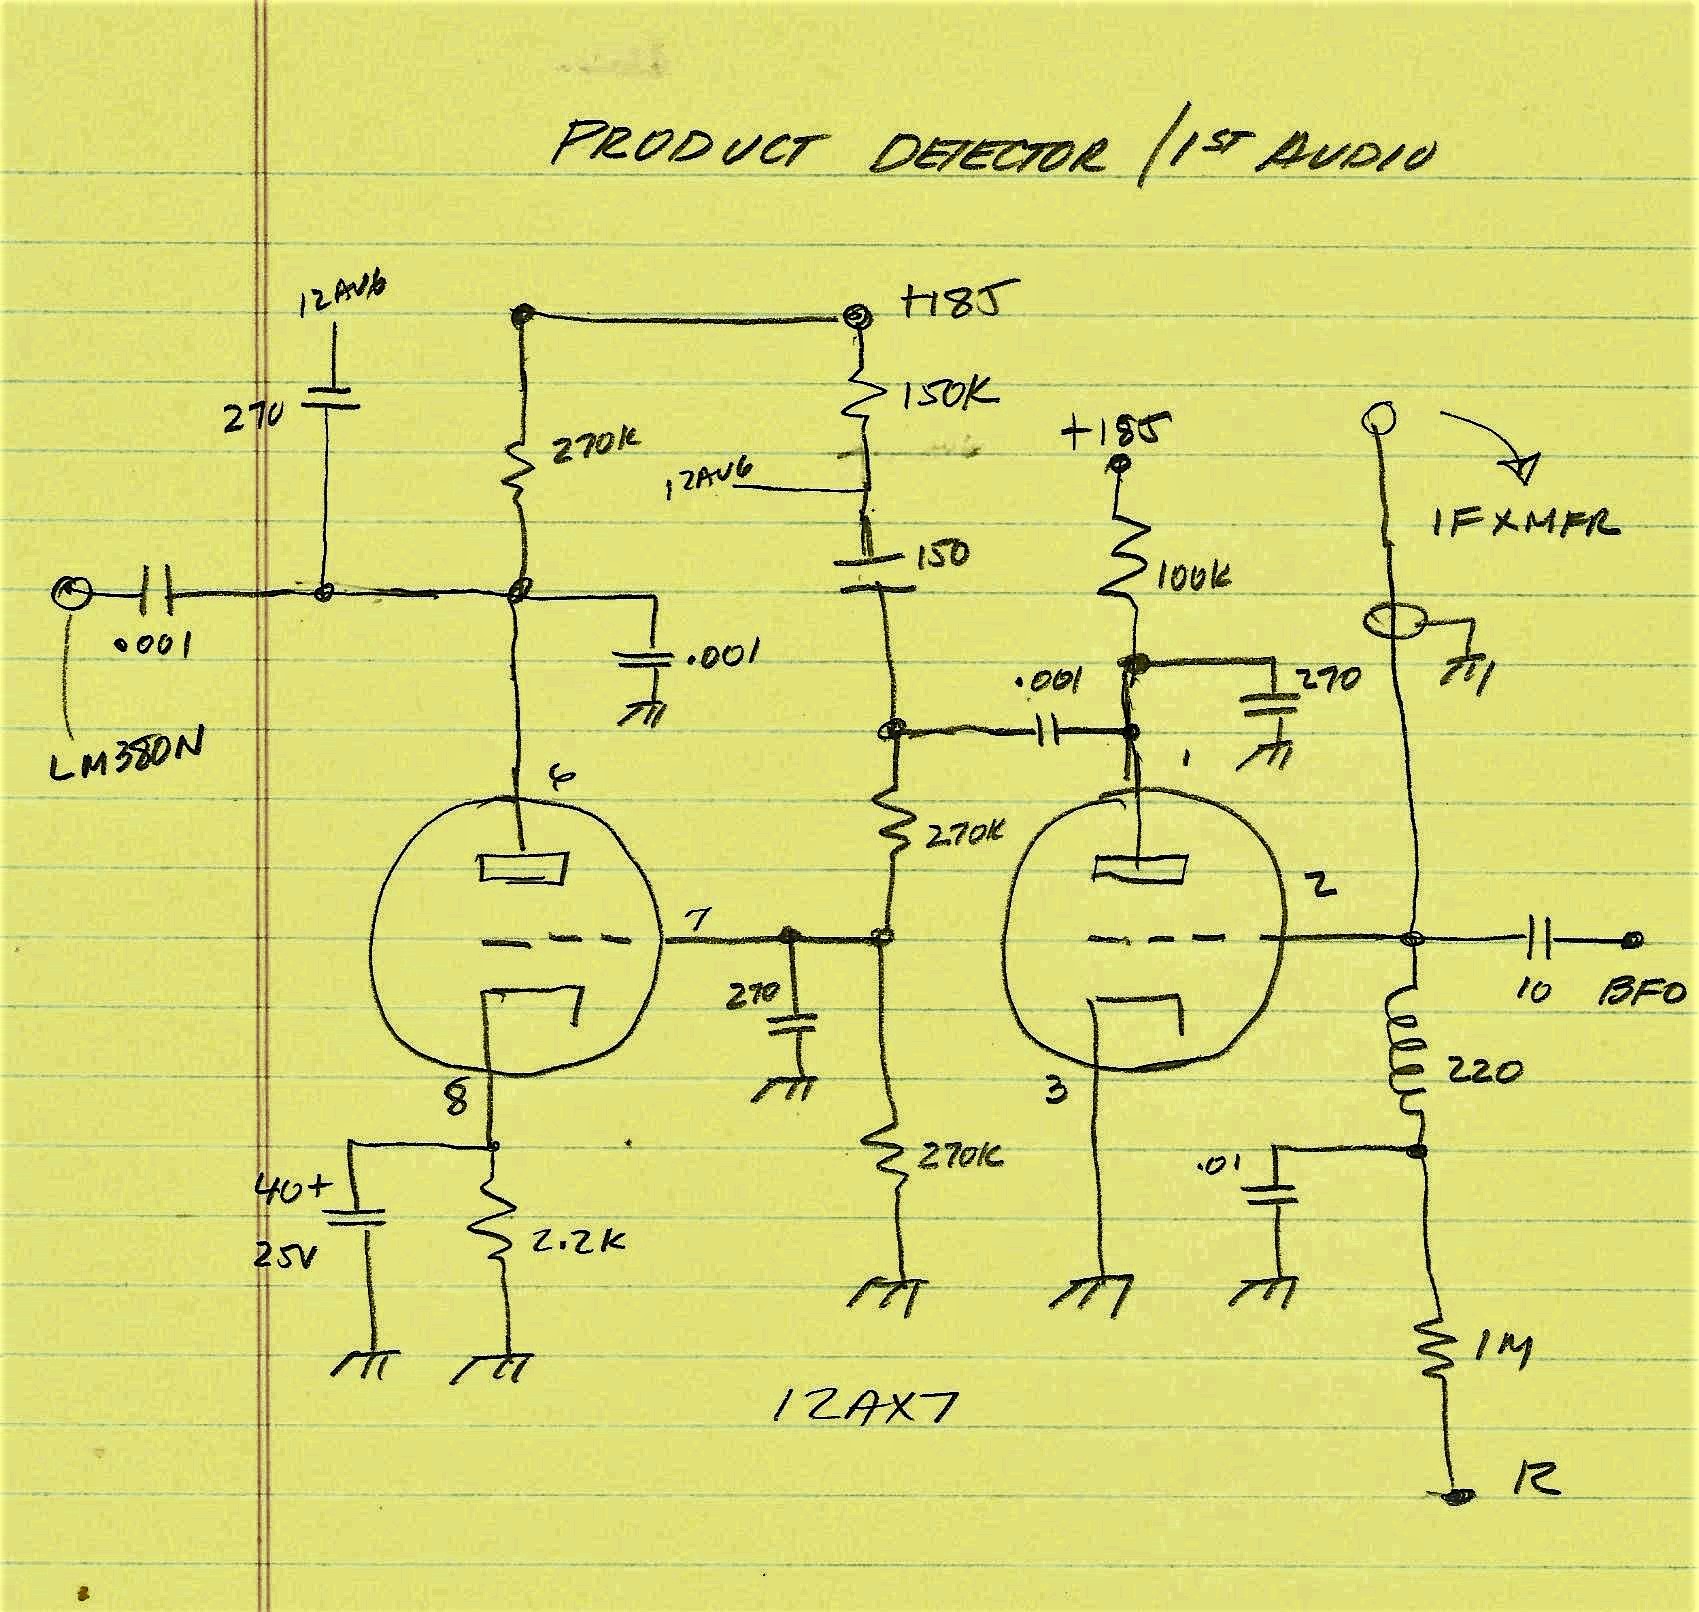 PRODUCT DETECTOR / 1ST AUDIO
12AV6
+185
270
150K
270K
+185
12AV6
IF XMFR
150
100K
.001
.001
.001
270
LM380N
6
1
270K
2
7
270
10 BFO
8
3
220
40+
270K
.01
25V
2.2K
1M
12AX7
R